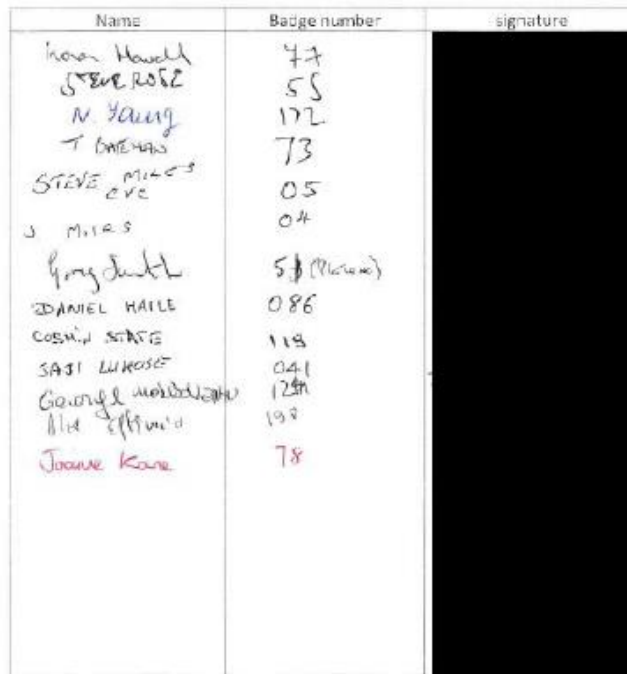 Name Badge number signature
Karen 77
STEVE ROSE 55
N. Young 172
T BATEMAN 73
STEVE MILES 05
eve
J MILES 04
Greg Smith 5
DANIEL HAILE 086
COSMIN STATE 118
SAJI LUKOSE 041
George
Alex 198
Joanne Kane 78